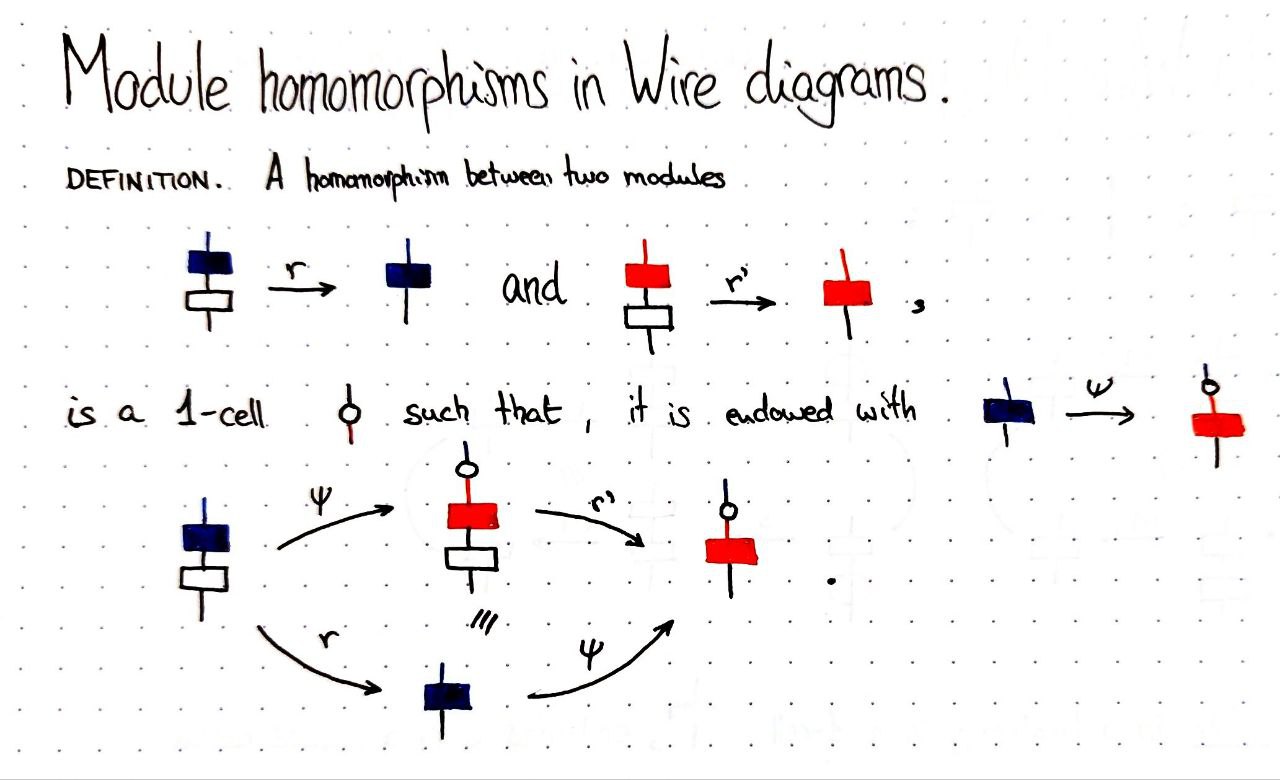 Module homomorphisms in Wire diagrams.
DEFINITION. A homomorphism between two modules
r and r' ,
is a 1-cell such that, it is endowed with ψ
ψ r'
r ψ .